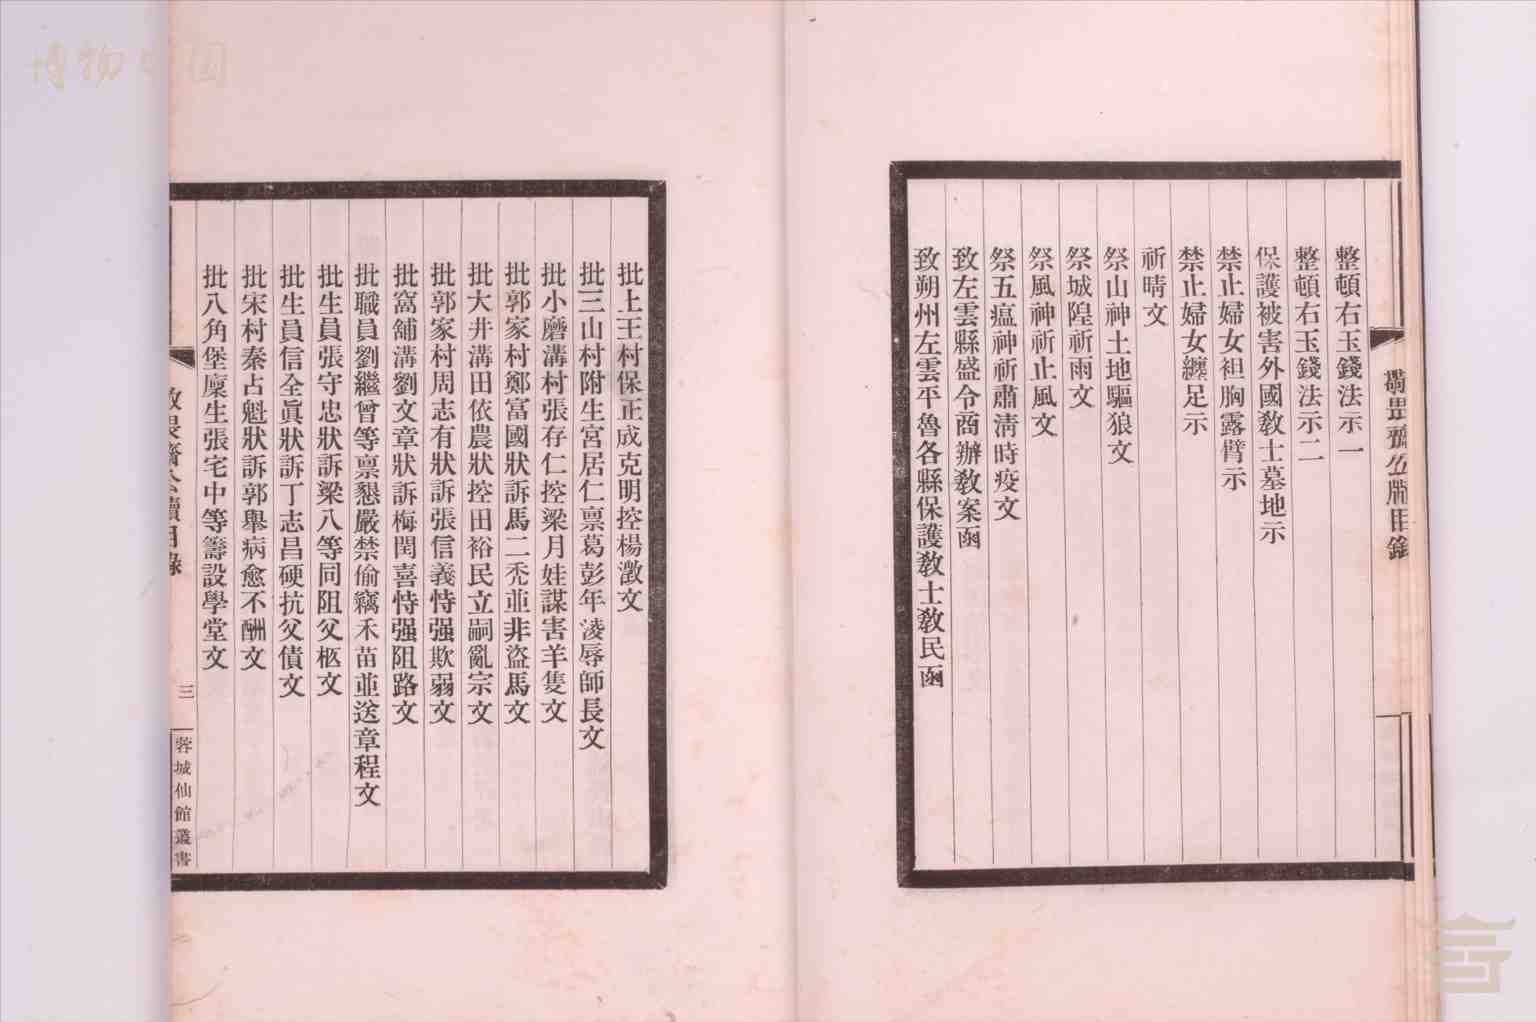 整頓右玉錢法示一
整頓右玉錢法示二
保護被害外國教士墓地示
禁止婦女袒胸露臂示
禁止婦女纏足示
祈晴文
祭山神土地驅狼文
祭城隍祈雨文
祭風神祈止風文
祭五瘟神祈肅清時疫文
致左雲縣盛令商辦教案函
致朔州左雲平魯各縣保護教士教民函
批上王村保正成克明控楊澂文
批三山村附生宮居仁禀葛彭年淩辱師長文
批小磨溝村張存仁控梁月娃謀害羊隻文
批郭家村鄭富國狀訴馬二禿並非盜馬文
批大井溝田依農狀控田裕民立嗣亂宗文
批郭家村周志有狀訴張信義恃强欺弱文
批窩舖溝劉文章狀訴梅閏喜恃强阻路文
批職員劉繼曾等禀懇嚴禁偷竊禾苗並送章程文
批生員張守忠狀訴梁八等同阻父柩文
批生員信全眞狀訴丁志昌硬抗父債文
批宋村秦占魁狀訴郭舉病愈不酬文
批八角堡廩生張宅中等籌設學堂文
敬畏齋公牘目錄
三
蓉城仙館叢書
博物中国